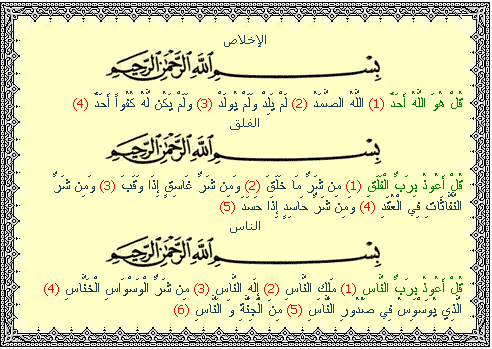 الإخلاص
بِسْمِ اللَّهِ الرَّحْمَٰنِ الرَّحِيمِ
قُلْ هُوَ اللَّهُ أَحَدٌ (1) اللَّهُ الصَّمَدُ (2) لَمْ يَلِدْ وَلَمْ يُولَدْ (3) وَلَمْ يَكُن لَّهُ كُفُواً أَحَدٌ (4)
الفلق
بِسْمِ اللَّهِ الرَّحْمَٰنِ الرَّحِيمِ
قُلْ أَعُوذُ بِرَبِّ الْفَلَقِ (1) مِن شَرِّ مَا خَلَقَ (2) وَمِن شَرِّ غَاسِقٍ إِذَا وَقَبَ (3) وَمِن شَرِّ
النَّفَّاثَاتِ فِي الْعُقَدِ (4) وَمِن شَرِّ حَاسِدٍ إِذَا حَسَدَ (5)
الناس
بِسْمِ اللَّهِ الرَّحْمَٰنِ الرَّحِيمِ
قُلْ أَعُوذُ بِرَبِّ النَّاسِ (1) مَلِكِ النَّاسِ (2) إِلَهِ النَّاسِ (3) مِن شَرِّ الْوَسْوَاسِ الْخَنَّاسِ (4)
الَّذِي يُوَسْوِسُ فِي صُدُورِ النَّاسِ (5) مِنَ الْجِنَّةِ وَ النَّاسِ (6)